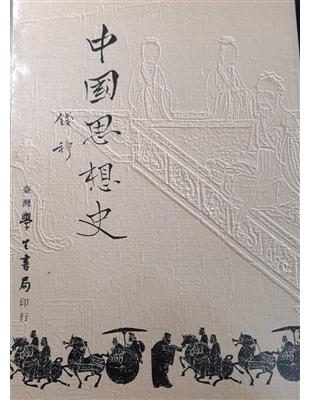 中國思想史
錢穆
臺灣學生書局印行